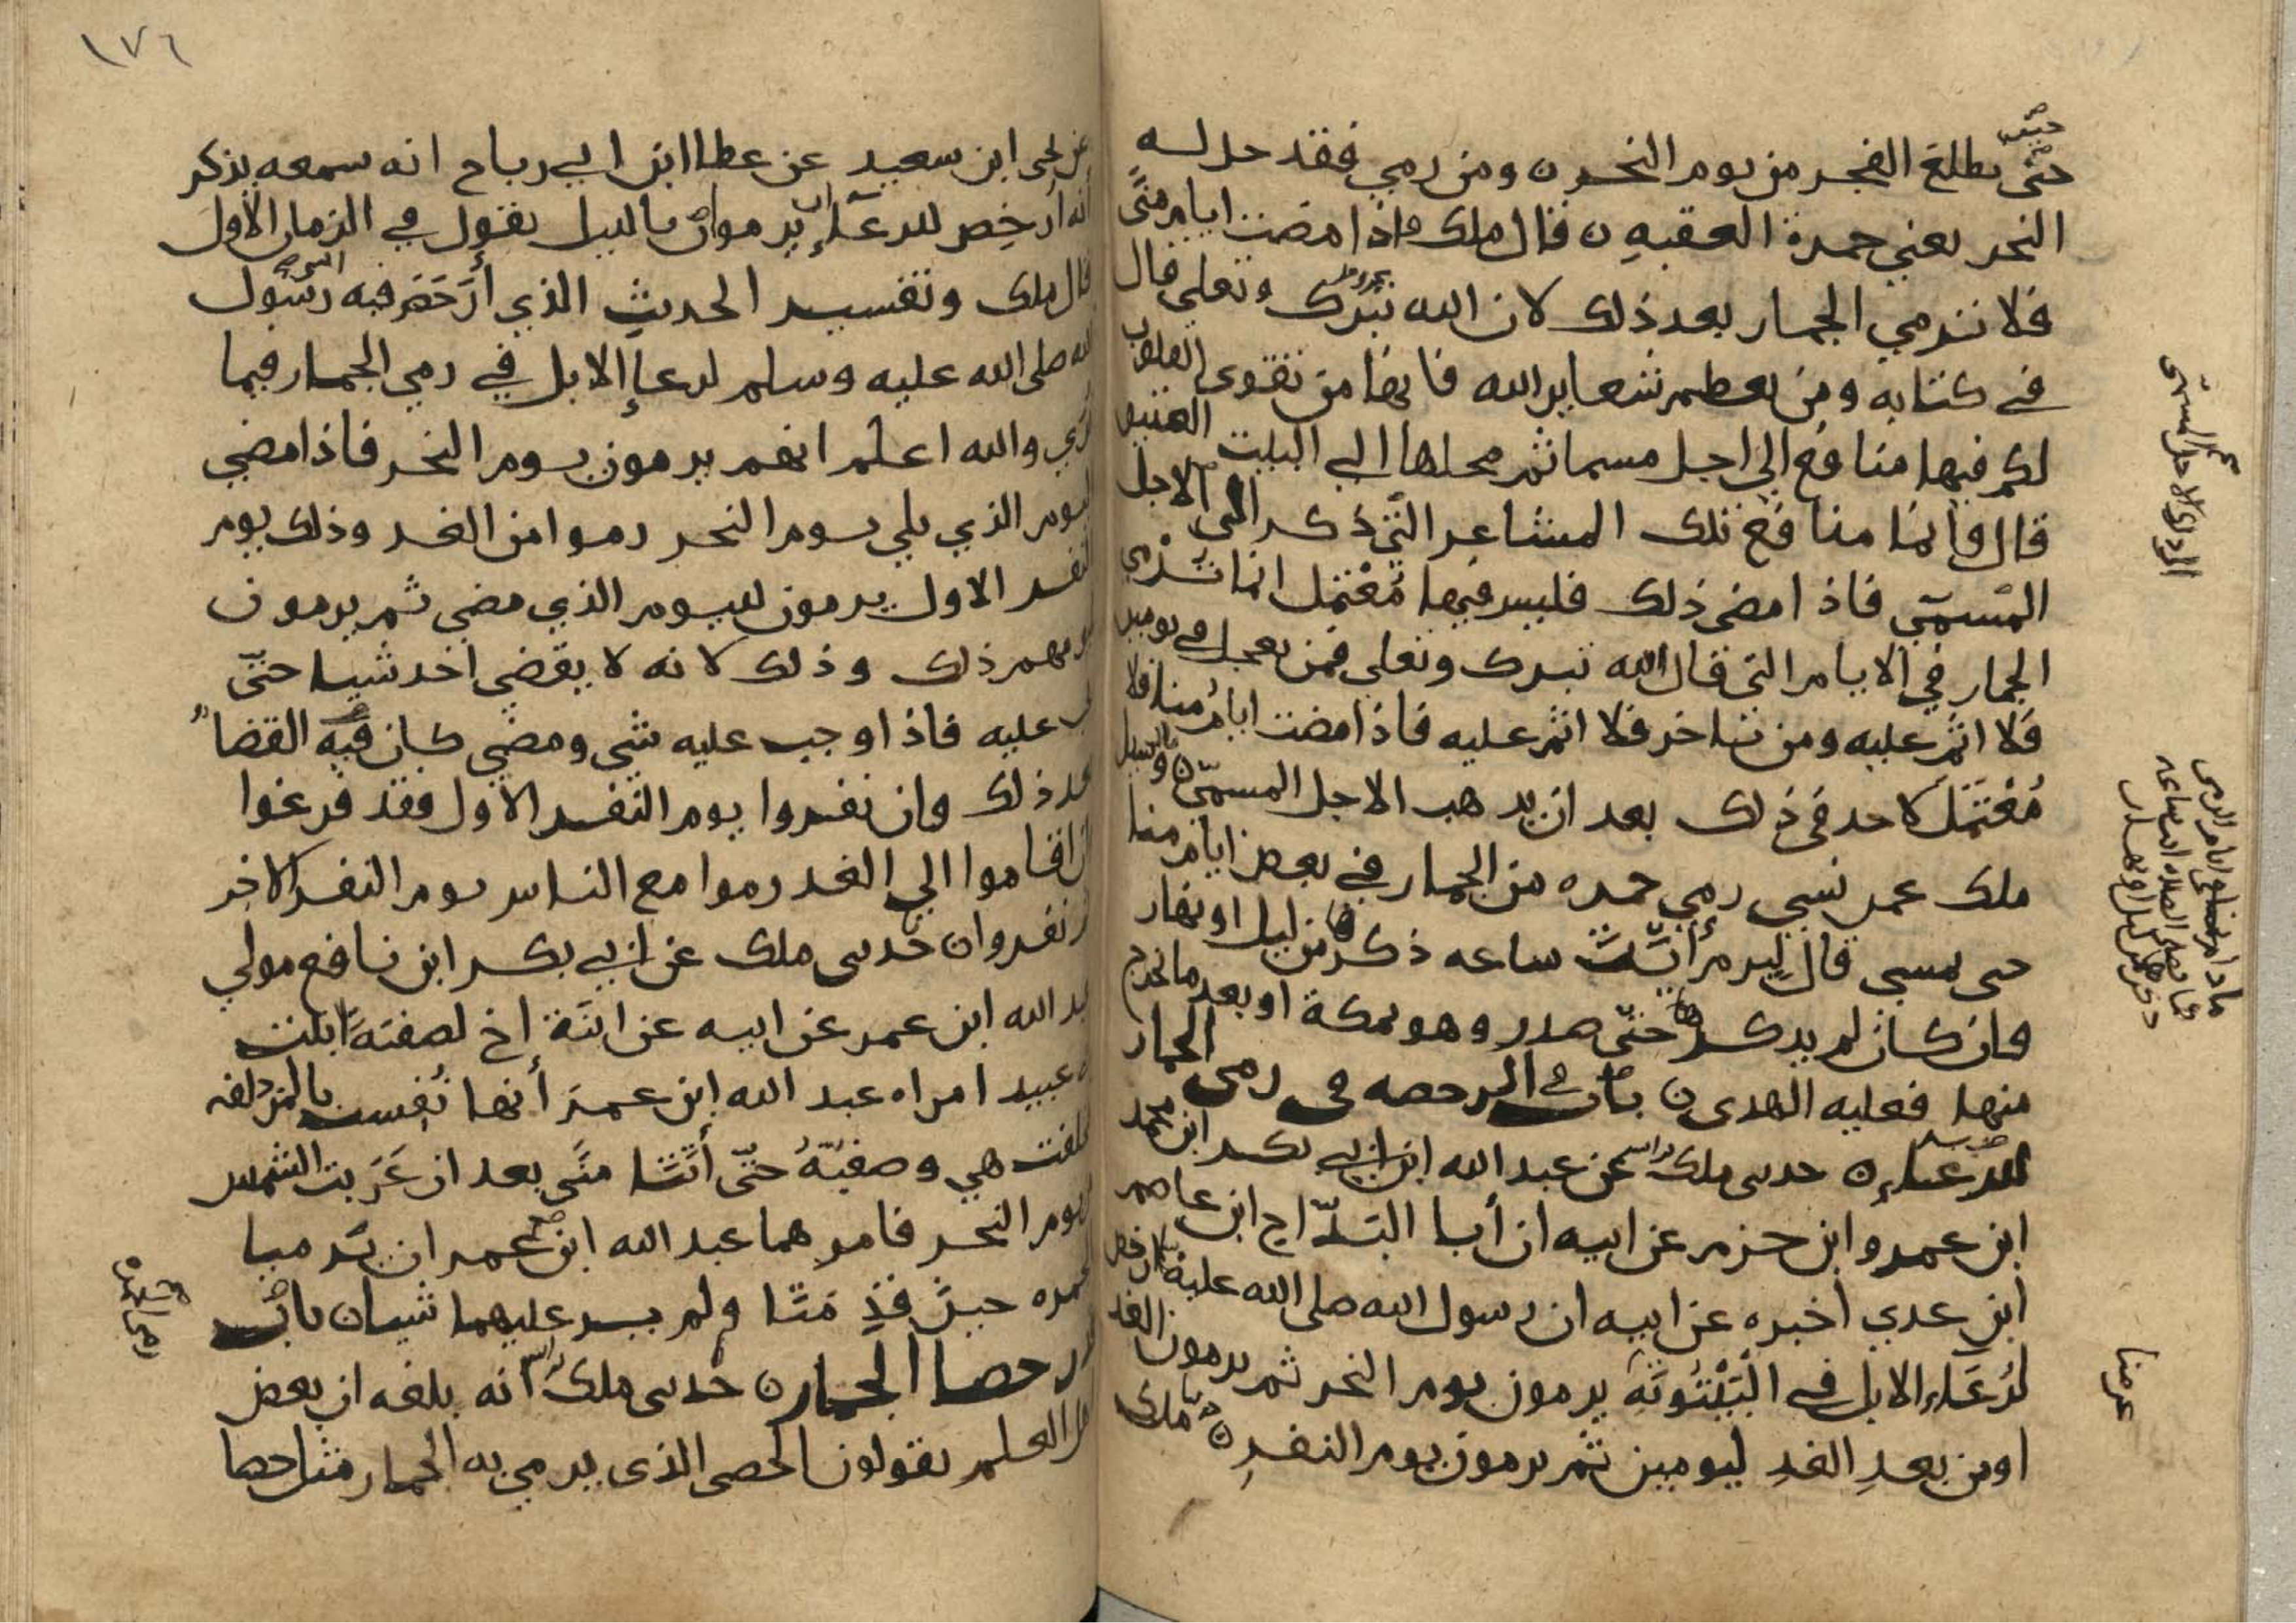 حتى يطلع الفجر من يوم النحر ومن رمي فقد حل له
النحر يعني جمرة العقبه قال ملك واذا مضت ايام منًى
فلا نرمي الجمار بعد ذلك لان الله تبرك وتعلى قال
في كتابه ومن يعظم شعاير الله فانها من تقوى القلوب
لكم فيها منافع الى اجل مسما ثم محلها الي البيت العتيق
قال وانما منافع تلك المشاعر التي ذكر الى الاجل
المسمّي فاذا مضى ذلك فليس فيها مُعْتمل انما ترْمي
الجمار في الايام التي قال الله تبرك وتعلى فمن تعجل في يومين
فلا اثم عليه ومن تاخر فلا اثم عليه فاذا مضت ايام منا فلا
مُعْتَمَل لاحد في ذلك بعد ان يذهب الاجل المسمّى وسيل
ملك عمن نسي رمي جمره من الجمار في بعض ايام منا
حى يمسي قال ليرم أيّت ساعه ذكرها من ليل او نهار
وان كان لم يذكرها حتّى صدر وهو بمكة او بعد ما يخرج
منها فعليه الهدى باب في الرخصه في رمى الجمار
للرعاء حدىى ملك عن عبد الله ابن ابي بكر ابن محمد
ابن عمرو ابن حزم عن ابيه ان أبا البدّاح ابن عاصم
ابن عدي اخبره عن ابيه ان رسول الله صلى الله عليه ارخص
لرُعَاء الابل في الْبَيْتُوتَةِ يرمون يوم النحر ثم يرمون الغد
اومن بعدِ الغدِ ليومين ثم يرمون يوم النفرِ ملك
عرمنا
١٧٦
عن يحيى ابن سعيد عن عطا ابن ابي رباح انه سمعه يذكر
انه أُرخِص للرعآء ان يرموا بالليل يقول في الزمان الاول
قال ملك وتفسير الحديث الذي أرْخَصَ فيه رسول
الله صلى الله عليه وسلم لرعاء الابل في رمي الجمار فيما
نري والله اعلم انهم يرمون يوم النحر فاذا مضي
اليوم الذي يلي يوم النحر رموا من الغد وذلك يوم
النفر الاول يرمون لليوم الذي مضى ثم يرمون
ليومهم ذلك وذلك لانه لا يقضي احد شيا حتّى
يجب عليه فاذا وجب عليه شى ومضى كان فيه القضا
بعد ذلك وان نفروا يوم النفر الاول فقد فرغوا
وان اقاموا الي الغد رموا مع الناس يوم النفر الاخر
ثم نفروا حدىى ملك عن ابي بكر ابن نافع مولي
عبد الله ابن عمر عن ابيه عن ابنَة اخ لصفيّة ابنت
ابي عبيد امراه عبد الله ابن عمر أنها نُفِست بالمزدلفه
فتخلفت هي وصفيّةُ حتّى أتتا منًى بعد ان غَربت الشمس
من يوم النحر فامرهما عبد الله ابن عمر ان يَرميا
الجمره حين قدِمَتا ولم ير عليهما شيا باب
قدر حصا الجمار حدىى ملك انه بلغه ان بعض
اهل العلم يقولون الحصى الذى يرمي به الجمار مثل حصا